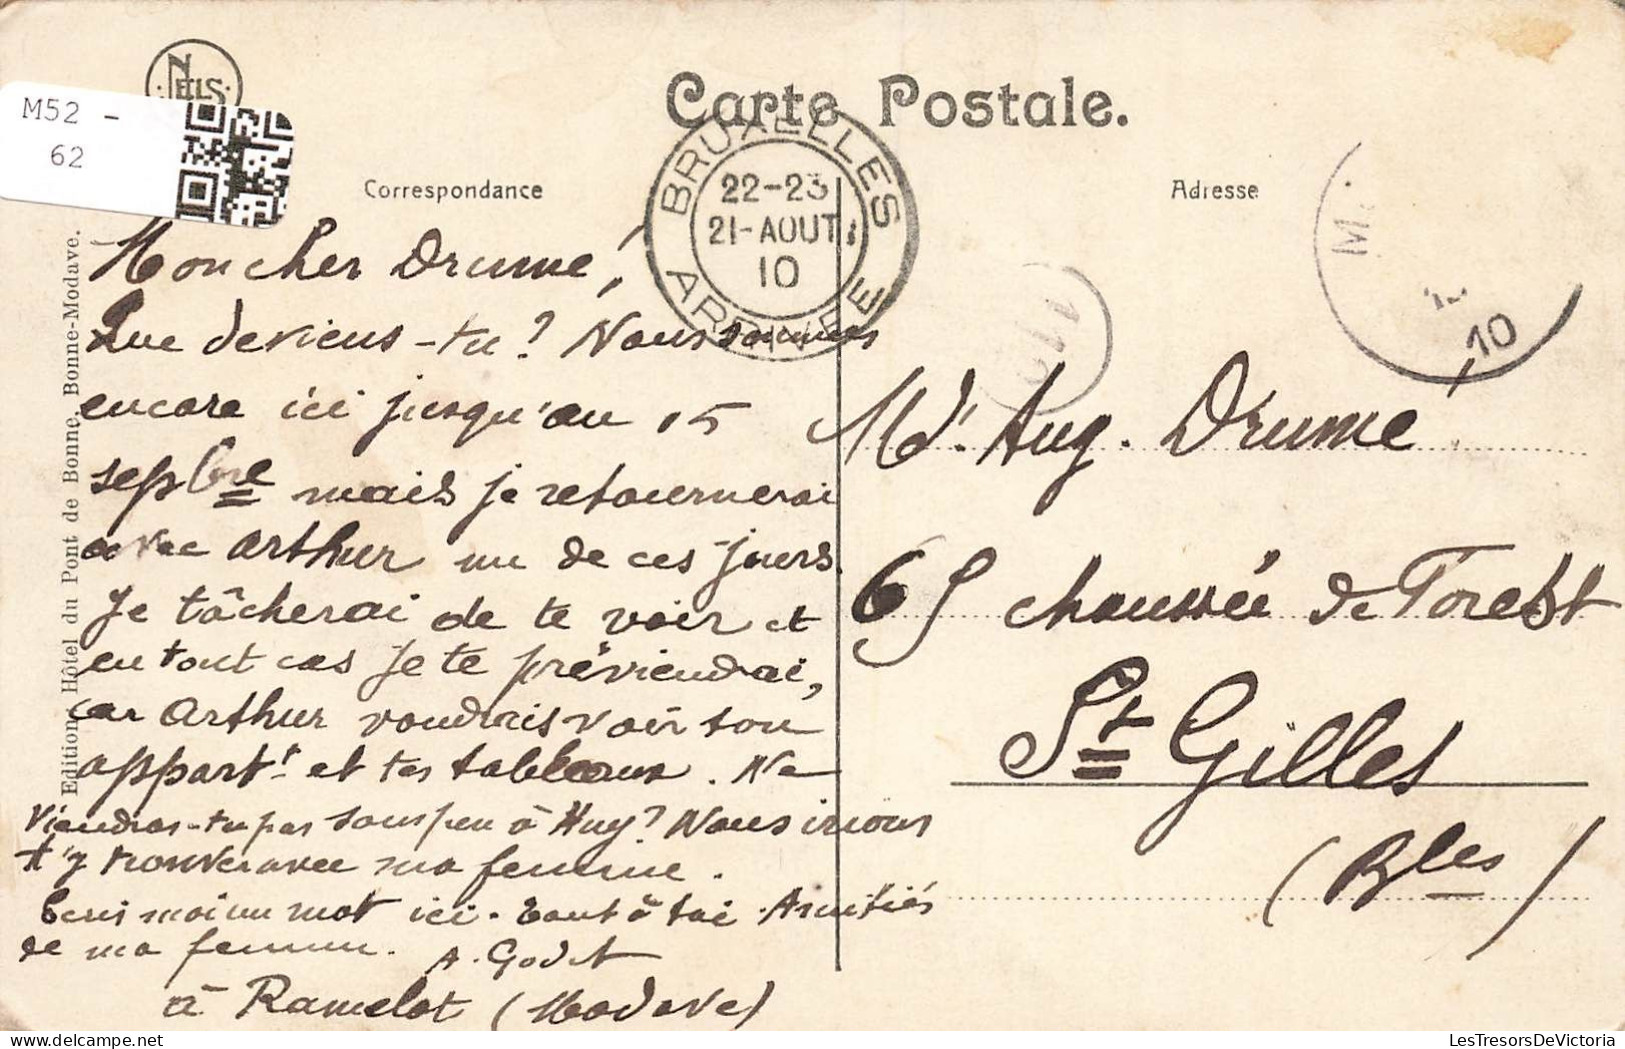 NELS
M52 -
62
Carte Postale.
Correspondance
Adresse
BRUXELLES
22-23
21-AOUT
10
ARRIVEE
M
10
Edition: Hôtel du Pont de Bonne, Bonne-Modave.
Mon cher Drumé!
Que deviens-tu? Nous sommes
encore ici jusqu'au 15
sepbre mais je retournerai
avec Arthur un de ces jours.
Je tâcherai de te voir et
en tout cas je te préviendrai,
car Arthur voudrais voir ton
appart! et tes tableaux. Ne
Viendras-tu pas sous peu à Huy? Nous irions
t'y trouver avec ma femme.
Ecris moi un mot ici. Tout à toi. Amitiés
de ma femme. A. Godet
à Ramelot (Modave)
Mr. Aug. Drumé
65 chaussée de Forest
St Gilles
(Bles)
LesTresorsDeVictoria